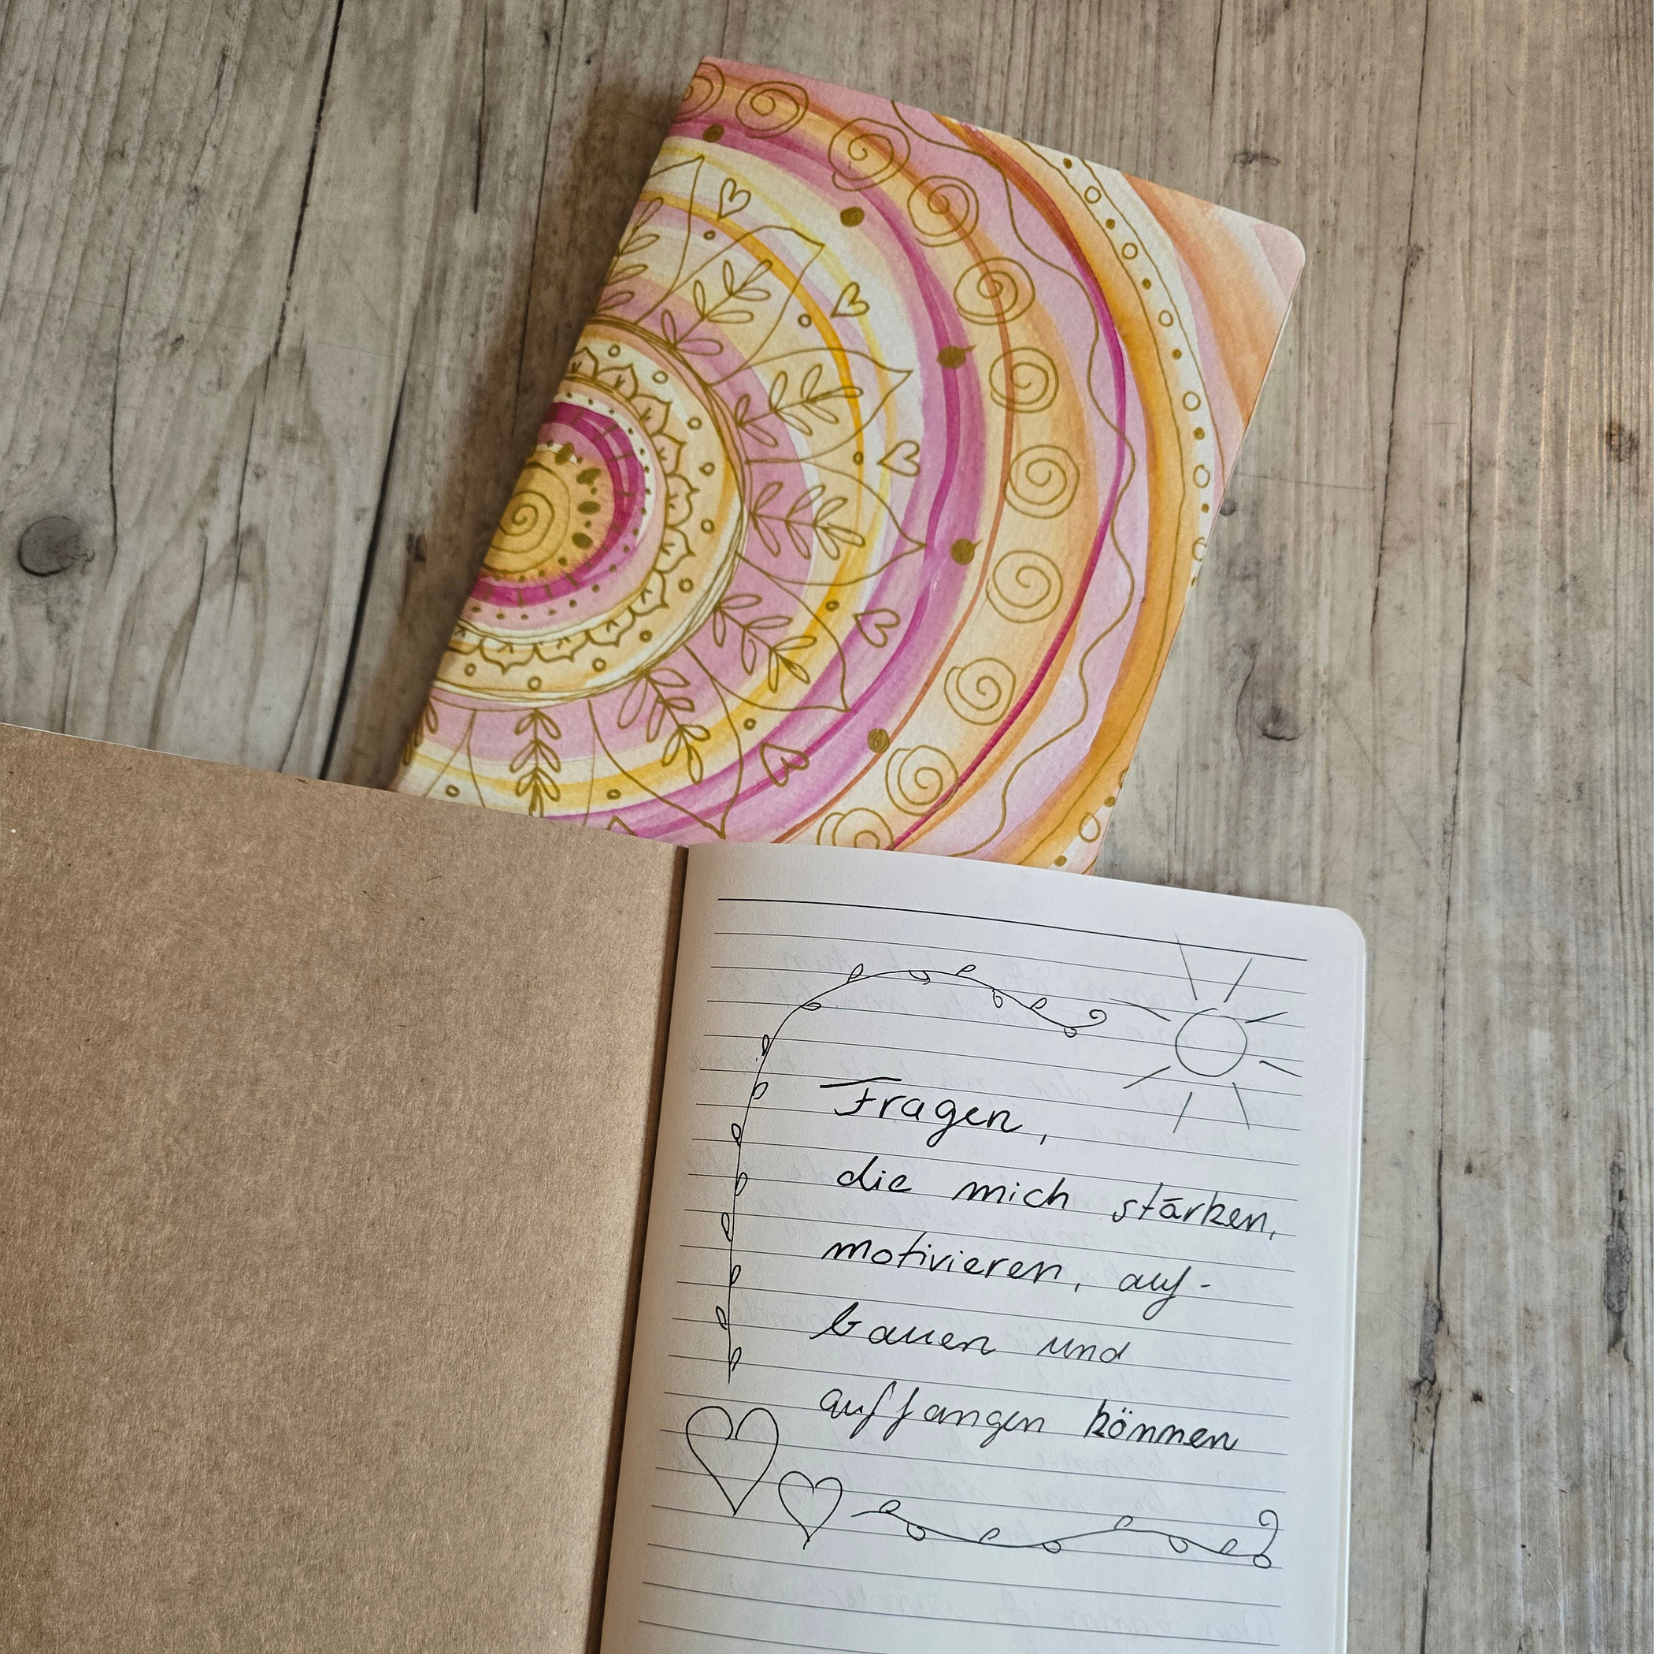 Fragen,
die mich stärken,
motivieren, auf-
bauen und
auffangen können